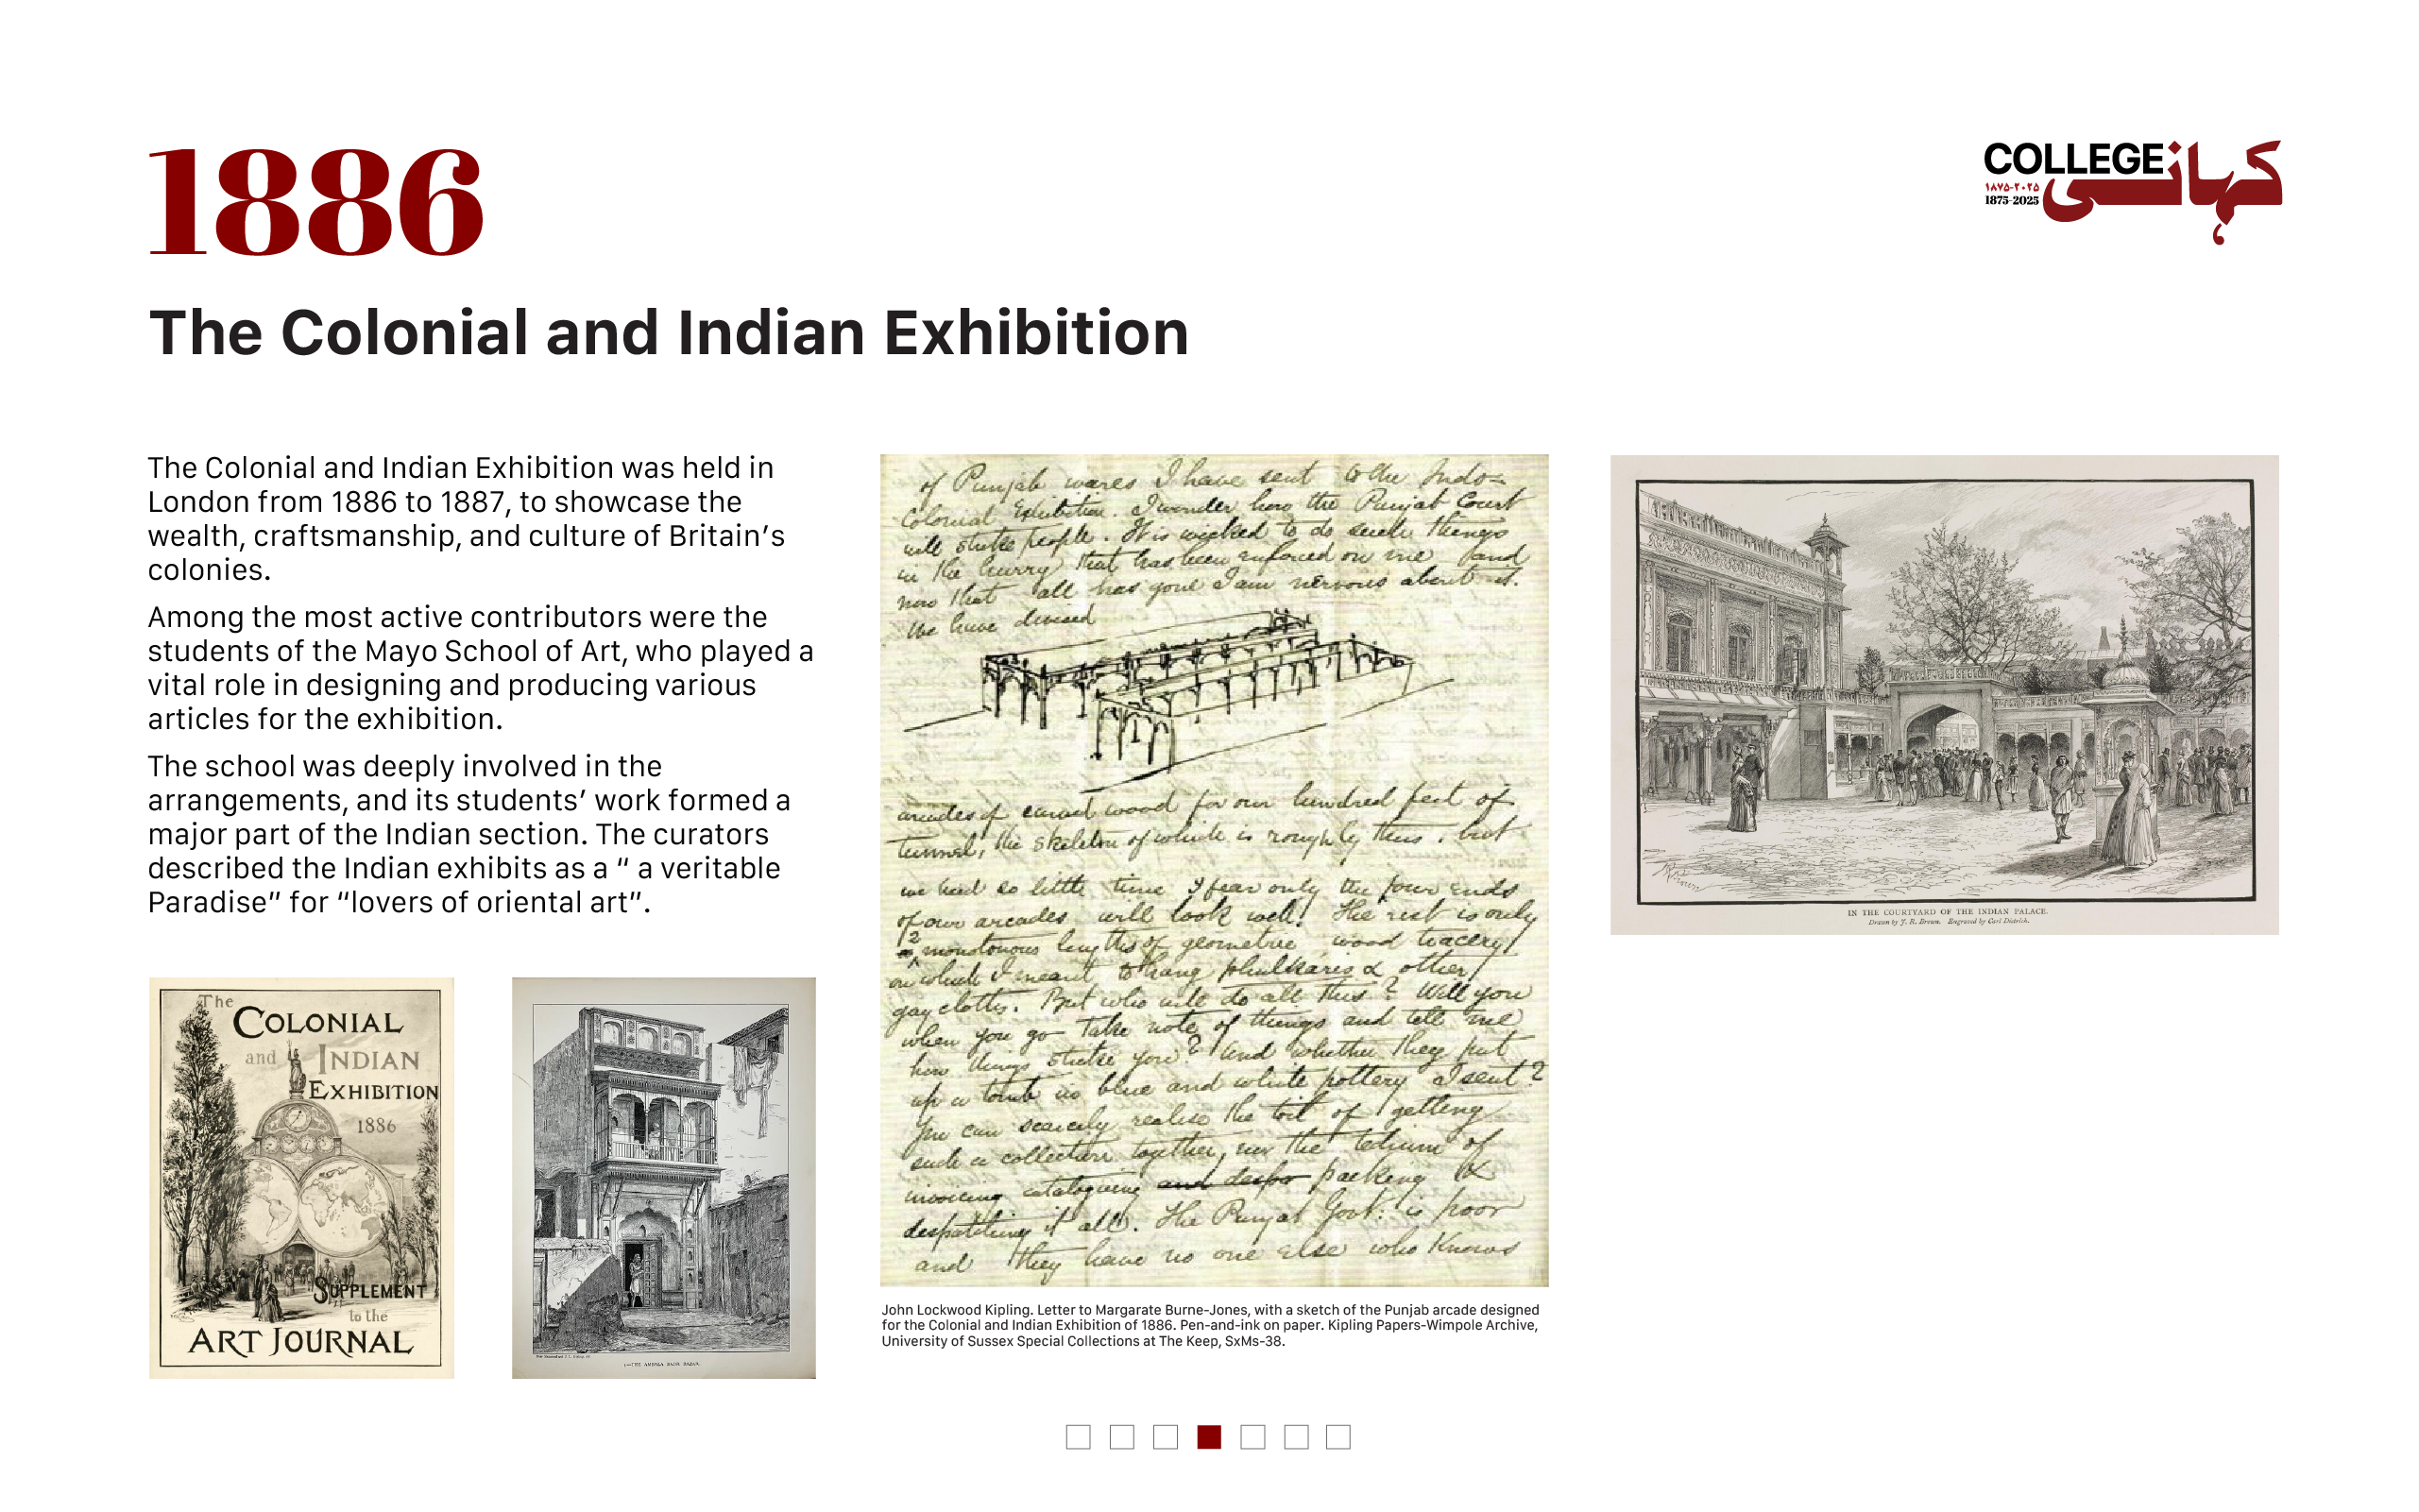 1886
COLLEGE کہانی
۱۸۷۵-۲۰۲۵
1875-2025
The Colonial and Indian Exhibition
The Colonial and Indian Exhibition was held in
London from 1886 to 1887, to showcase the
wealth, craftsmanship, and culture of Britain’s
colonies.
Among the most active contributors were the
students of the Mayo School of Art, who played a
vital role in designing and producing various
articles for the exhibition.
The school was deeply involved in the
arrangements, and its students’ work formed a
major part of the Indian section. The curators
described the Indian exhibits as a “ a veritable
Paradise” for “lovers of oriental art”.
The
COLONIAL
and INDIAN
EXHIBITION
1886
SUPPLEMENT
to the
ART JOURNAL
of Punjab wares I have sent to the Indo-
Colonial Exhibition. I wonder how the Punjab Court
will strike people. It is wicked to do such things
in the hurry that has been enforced on me and
now that all has gone I am nervous about it.
We have devised
arcades of carved wood for our hundred feet of
tunnel, the skeleton of which is roughly thus, but
we had so little time I fear only the four ends
of our arcades will look well! The rest is only
monotonous lengths of geometric wood tracery
on which I meant to hang phulkaris & other
gay cloths. But who will do all this? Will you
when you go take note of things and tell me
how things strike you? And whether they put
up a tomb in blue and white pottery I sent?
You can scarcely realise the toil of getting
such a collection together, nor the tedium of
invoicing cataloguing and packing &
despatching it all. The Punjab Govt: is poor
and they have no one else who knows
John Lockwood Kipling. Letter to Margarate Burne-Jones, with a sketch of the Punjab arcade designed
for the Colonial and Indian Exhibition of 1886. Pen-and-ink on paper. Kipling Papers-Wimpole Archive,
University of Sussex Special Collections at The Keep, SxMs-38.
IN THE COURTYARD OF THE INDIAN PALACE.
Drawn by J. R. Brown. Engraved by Carl Dietrich.